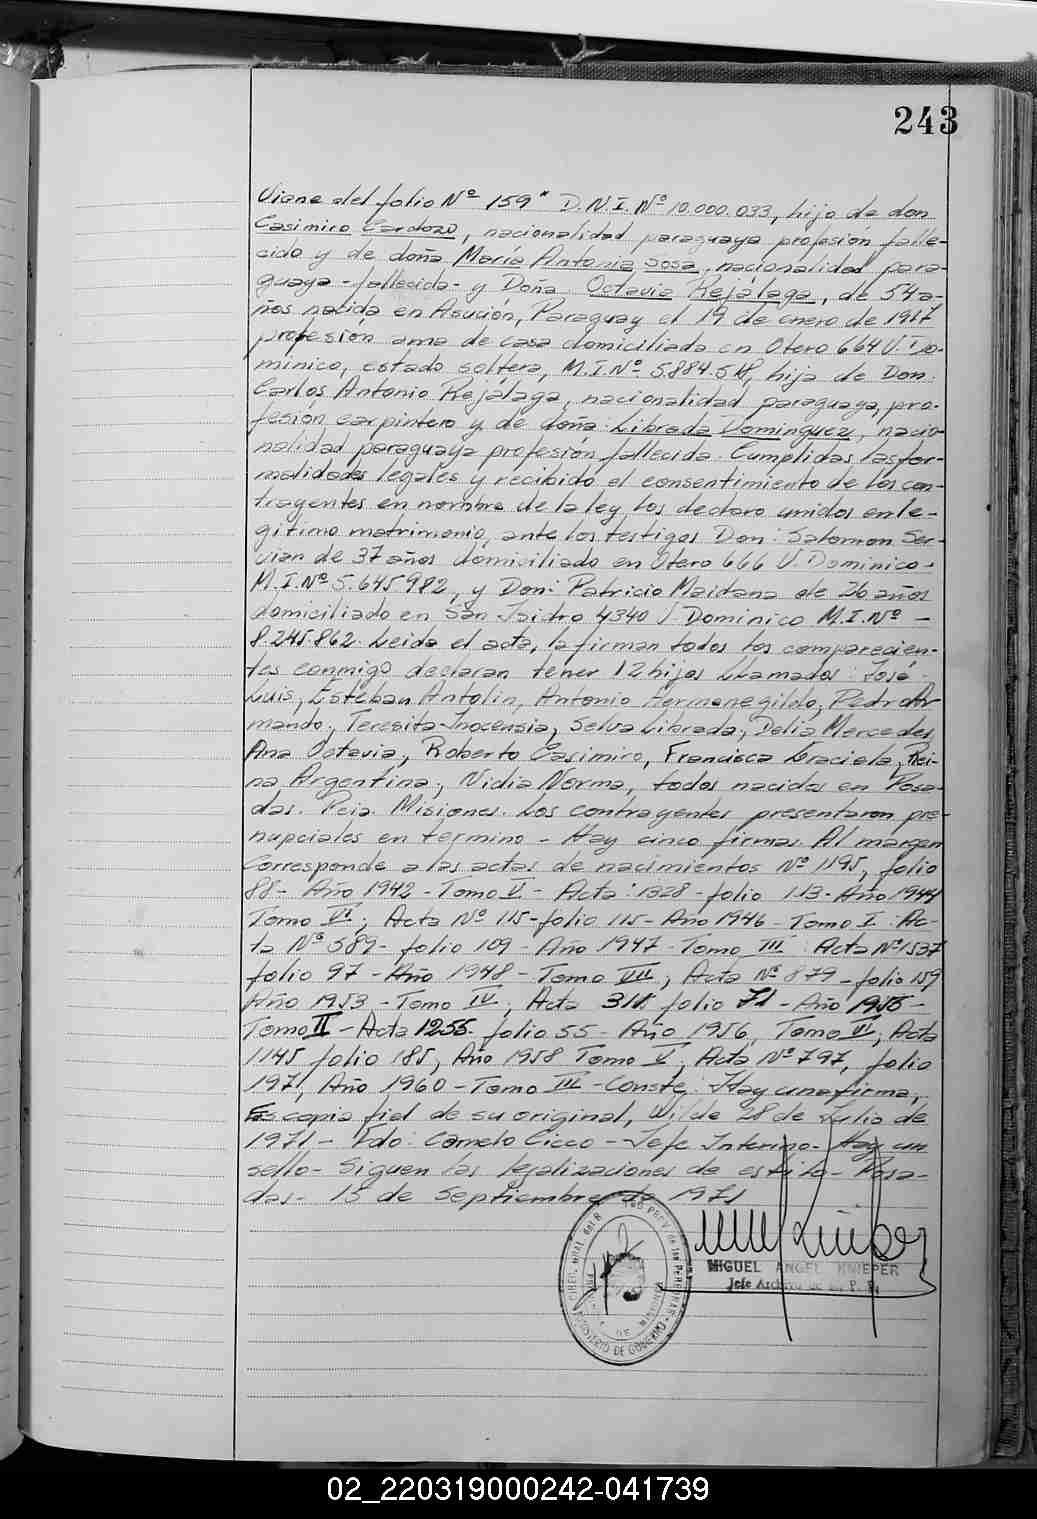 243
Viene del folio Nº 159" D.N.I. Nº 10.000.033, hijo de don
Casimiro Cardozo, nacionalidad paraguaya profesión falle-
cido y de doña María Antonia Sosa, nacionalidad para-
guaya - fallecida - y Doña Octavia Rejálaga, de 54 a-
ños nacida en Asución, Paraguay el 19 de enero de 1917
profesión ama de casa domiciliada en Otero 664 V. Do-
mínico, estado soltera, M.I. Nº 5.884.5 hija de Don:
Carlos Antonio Rejálaga, nacionalidad paraguaya, pro-
fesión carpintero y de doña: Librada Dominguez, nacio-
nalidad paraguaya profesión fallecida. Cumplidas las for-
malidades legales y recibido el consentimiento de los con-
trayentes en nombre de la ley los declaro unidos en le-
gítimo matrimonio, ante los testigos Don: Salomon Ser-
vian de 37 años domiciliado en Otero 666 V. Dominico -
M.I. Nº 5.645.982, y Don: Patricio Maidana de 26 años
domiciliado en San Isidro 4340 V. Dominico M.I. Nº -
8.245.862. Leida el acta, la firman todos los comparecien-
tes conmigo declaran tener 12 hijos Llamados: José
Luis, Estéban Antolin, Antonio Hermenegildo, Pedro Ar
mando, Teresita Inocensia, Selva Librada, Delia Mercedes,
Ana Octavia, Roberto Casimiro, Francisca Graciela, Rei-
na Argentina, Nidia Norma, todos nacidos en Posa-
das. Pcia. Misiones. Los contrayentes presentaron pre-
nupciales en termino - Hay cinco firmas. Al margen
Corresponde a las actas de nacimientos Nº 1195, folio
88 - Año 1942 - Tomo V - Acta: 1328 - folio 113 - Año 1944
Tomo VI; Acta Nº 115 - folio 115 - Año 1946 - Tomo I: Ac-
ta Nº 589 - folio 109 - Año 1947 - Tomo III: Acta Nº 1537
folio 97 - Año 1948 - Tomo VIII; Acta Nº 879 - folio 159
Año 1953 - Tomo IV; Acta 311. folio 71 - Año 1955 -
Tomo II - Acta 1255. folio 55 - Año 1956, Tomo VI, Acta
1145 folio 185, Año 1958 Tomo V; Acta Nº 797, folio
197, Año 1960 - Tomo III - Conste: Hay una firma,
Es copia fiel de su original, Wilde 28 de Julio de
1971 - Fdo: Camelo Cicco - Jefe Interino - Hay un
sello - Siguen las legalizaciones de estilo - Posa-
das - 15 de Septiembre de 1971
MIGUEL ANGEL KNIEPER
Jefe Archivo de R. P. P.
DIREC. GRAL. DEL R. PROV. de las PERSONAS
MINISTERIO DE GOBIERNO
DE MISIONES
02_220319000242-041739